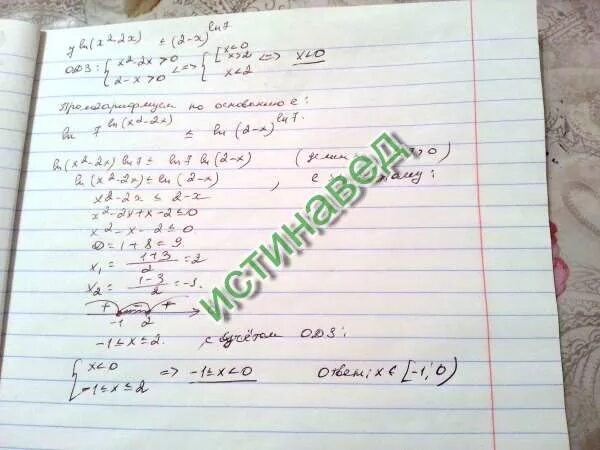 7 ln(x²-2x) ≤ (2-x) ln7
ОДЗ: { x²-2x>0 2-x>0 <=> { [ x<0 x>2 x<2 <=> x<0
Прологарифмируем по основанию e:
ln 7 ln(x²-2x) ≤ ln (2-x) ln7.
ln(x²-2x) ln7 ≤ ln7 ln(2-x)
ln(x²-2x) ≤ ln(2-x)
x²-2x ≤ 2-x
x²-2x+x-2≤0
x²-x-2≤0
D=1+8=9
x₁ = 1+3 / 2 = 2
x₂ = 1-3 / 2 = -1.
+ - +
-1 2
-1≤x≤2. с учётом ОДЗ:
{ x<0 -1≤x≤2 => -1≤x<0 Ответ: x ∈ [-1; 0)
ИСТИНАВЕД